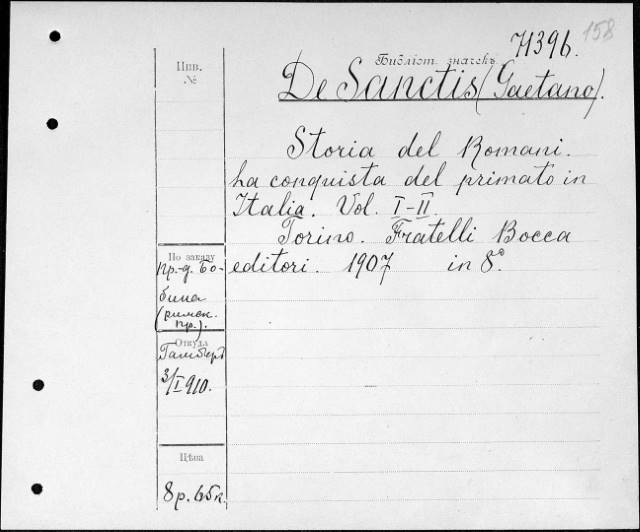 158
71396.
Библіот. значекъ
De Sanctis (Gaetano).
Инв.
№
Storia del Romani.
La conquista del primato in
Italia. Vol. I-II.
Torino. Fratelli Bocca
editori. 1907 in 8°
По заказу
пр.-д. Бо-
бина
(римск.
пр.).
Откуда
3/I 910.
Цѣна
8 р. 65 к.